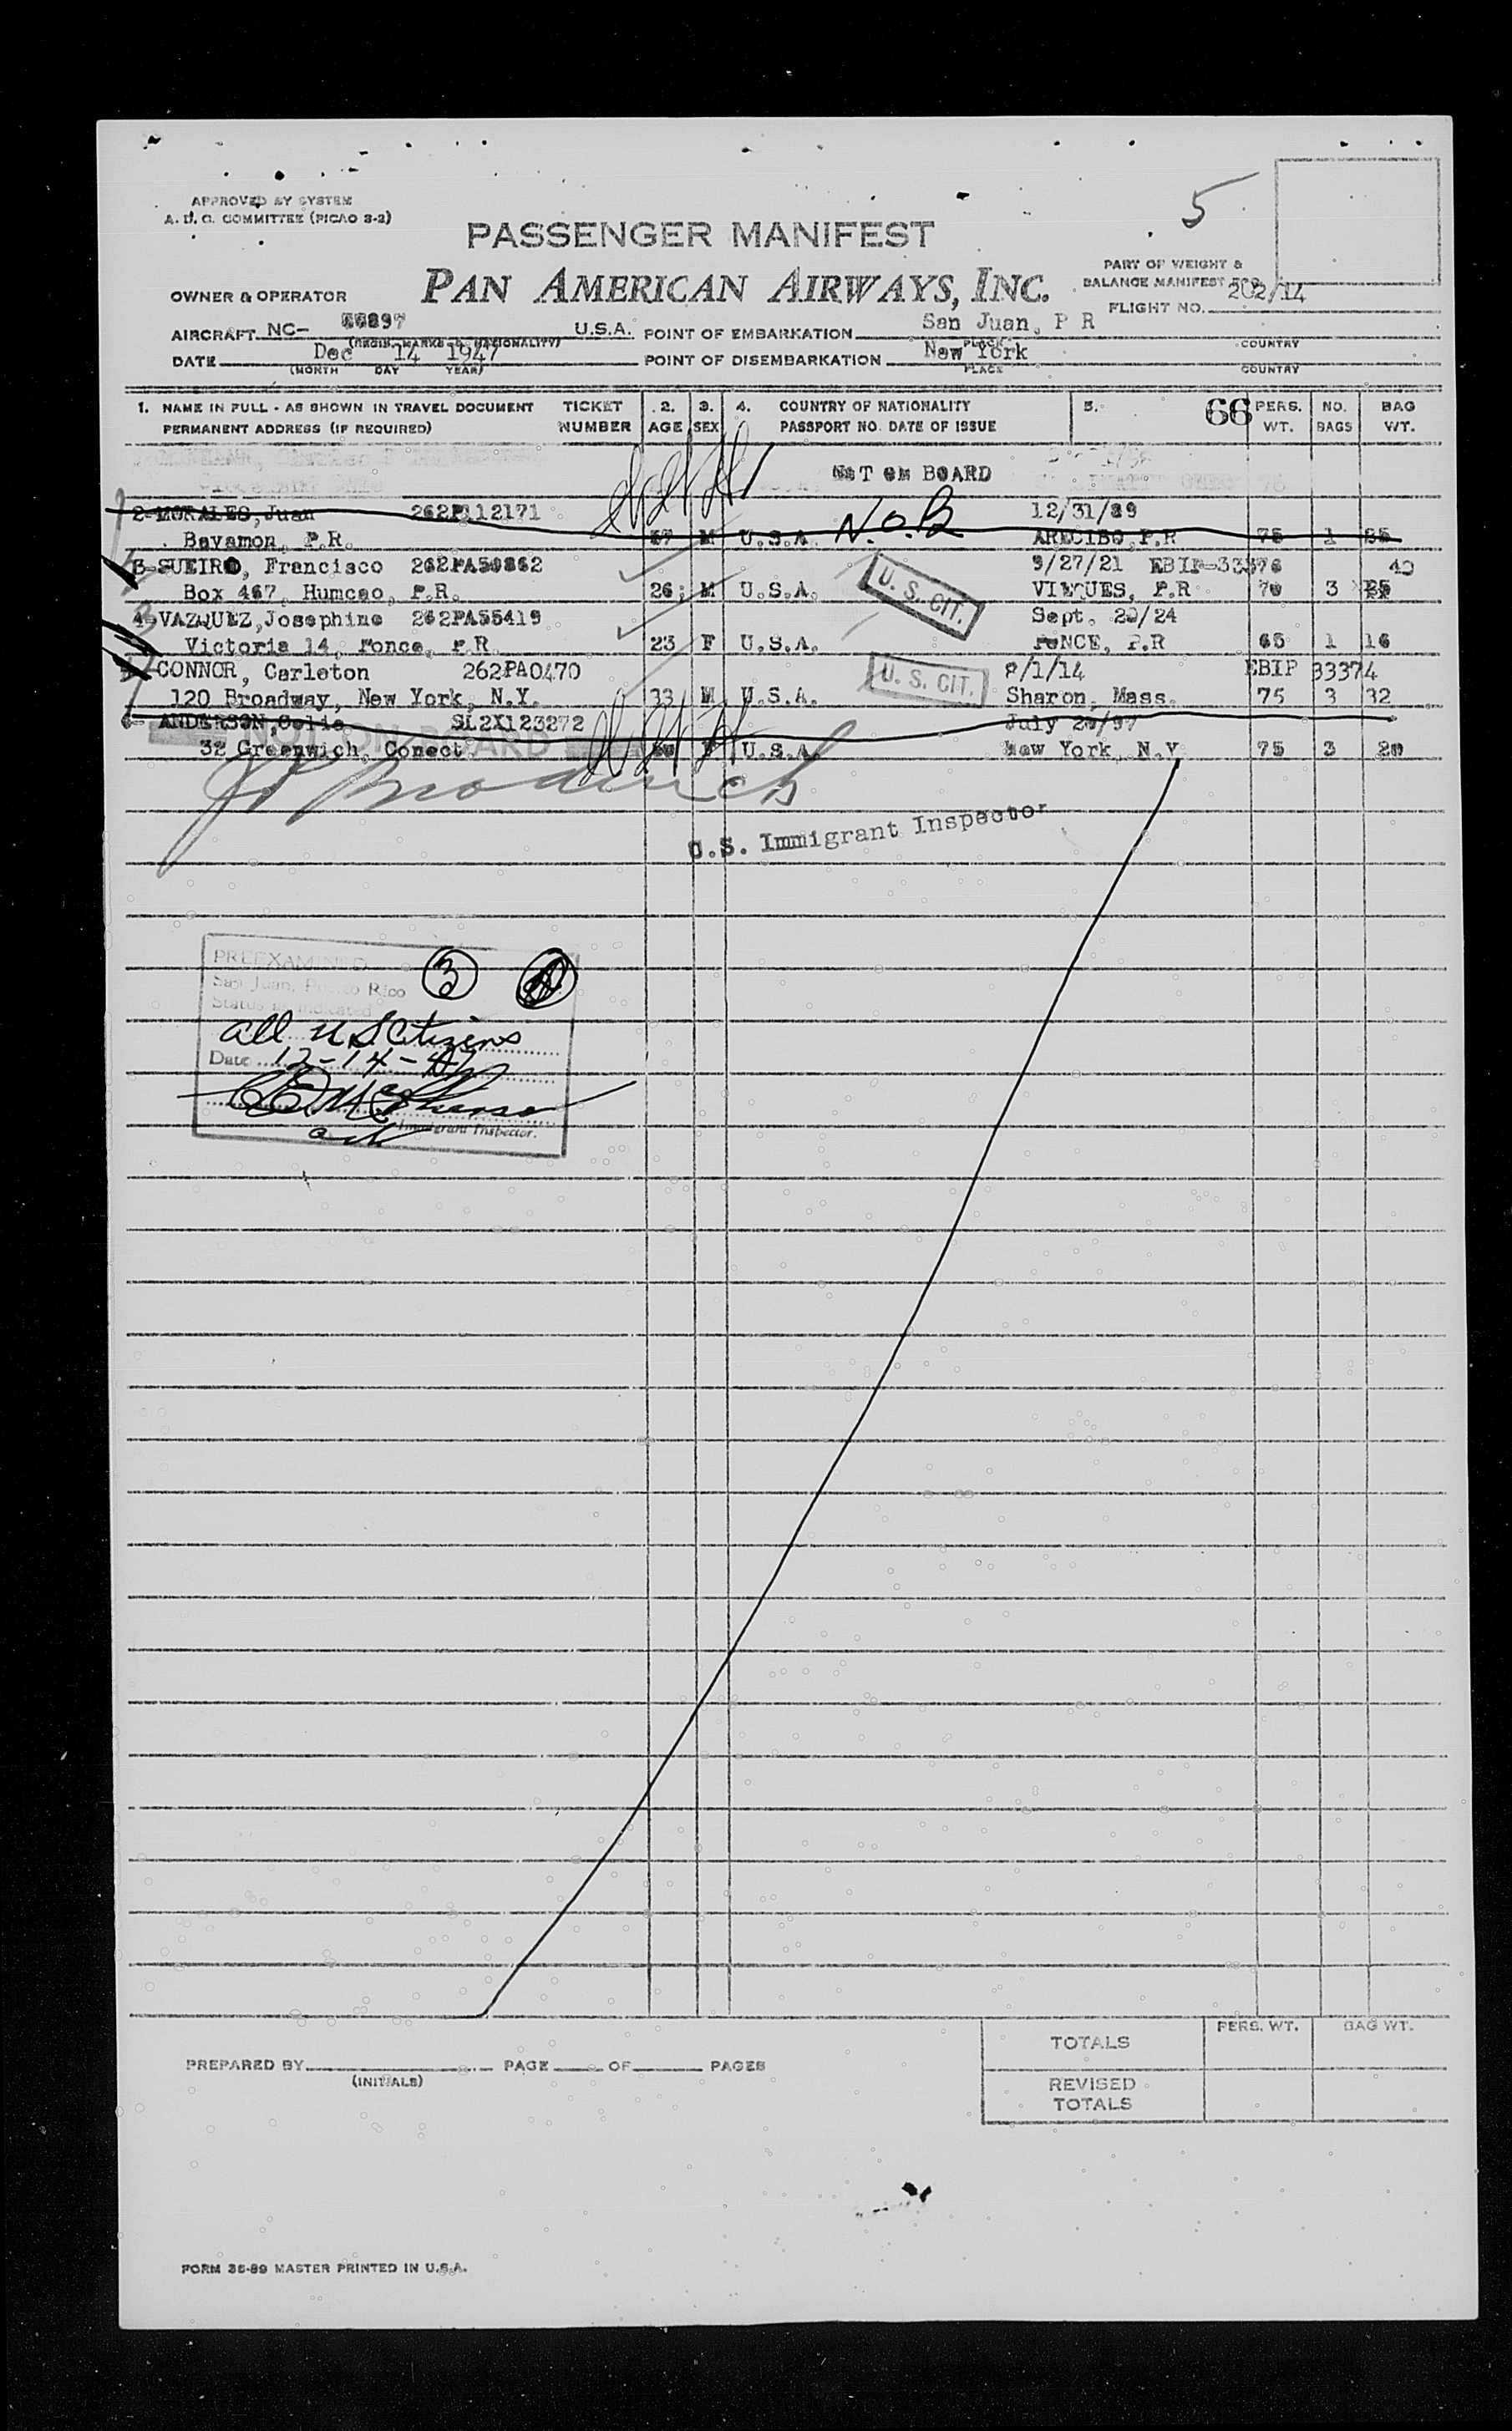 APPROVED BY SYSTEM
A. D. G. COMMITTEE (PICAO 3-2)
5
PASSENGER MANIFEST
PAN AMERICAN AIRWAYS, INC.
PART OF WEIGHT &
BALANCE MANIFEST
OWNER & OPERATOR
FLIGHT NO. 202/14
AIRCRAFT NC- 897 U.S.A. POINT OF EMBARKATION San Juan, P R
(REGIS. MARKS & NATIONALITY) PLACE COUNTRY
DATE Dec 14 1947 POINT OF DISEMBARKATION New York
(MONTH DAY YEAR) PLACE COUNTRY
1. NAME IN FULL - AS SHOWN IN TRAVEL DOCUMENT TICKET 2. 3. 4. COUNTRY OF NATIONALITY 5. 66 PERS. NO. BAG
PERMANENT ADDRESS (IF REQUIRED) NUMBER AGE SEX PASSPORT NO. DATE OF ISSUE WT. BAGS WT.
NOT ON BOARD
2-MORALES, Juan 262P112171 12/31/89
Bayamon, P.R. M U.S.A. N.O.B ARECIBO, P.R 75 1
3-SUEIRO, Francisco 262PA50862 9/27/21 EBIP-33376 40
Box 467, Humcao, P.R. 26 M U.S.A. U. S. CIT. VIEQUES, P.R 70 3
4-VAZQUEZ, Josephine 262PA55419 Sept. 20/24
Victoria 14, Ponce, P.R 23 F U.S.A. PONCE, P.R 65 1 16
CONNOR, Carleton 262PA0470 8/1/14 EBIP 33374
120 Broadway, New York, N.Y. 33 M U.S.A. U. S. CIT. Sharon, Mass. 75 3 32
6- ANDERSON, Celia SL2X123272 July 20/97
NOT ON BOARD
32 Greenwich, Conect F U.S.A New York, N.Y 75 3 20
U.S. Immigrant Inspector
PREEXAMINED 3
San Juan, Puerto Rico
Status as indicated
all U S Citizens
Date 12-14-47
Immigrant Inspector.
TOTALS PERS. WT. BAG WT.
PREPARED BY PAGE OF PAGES
(INITIALS)
REVISED
TOTALS
FORM 35-89 MASTER PRINTED IN U.S.A.